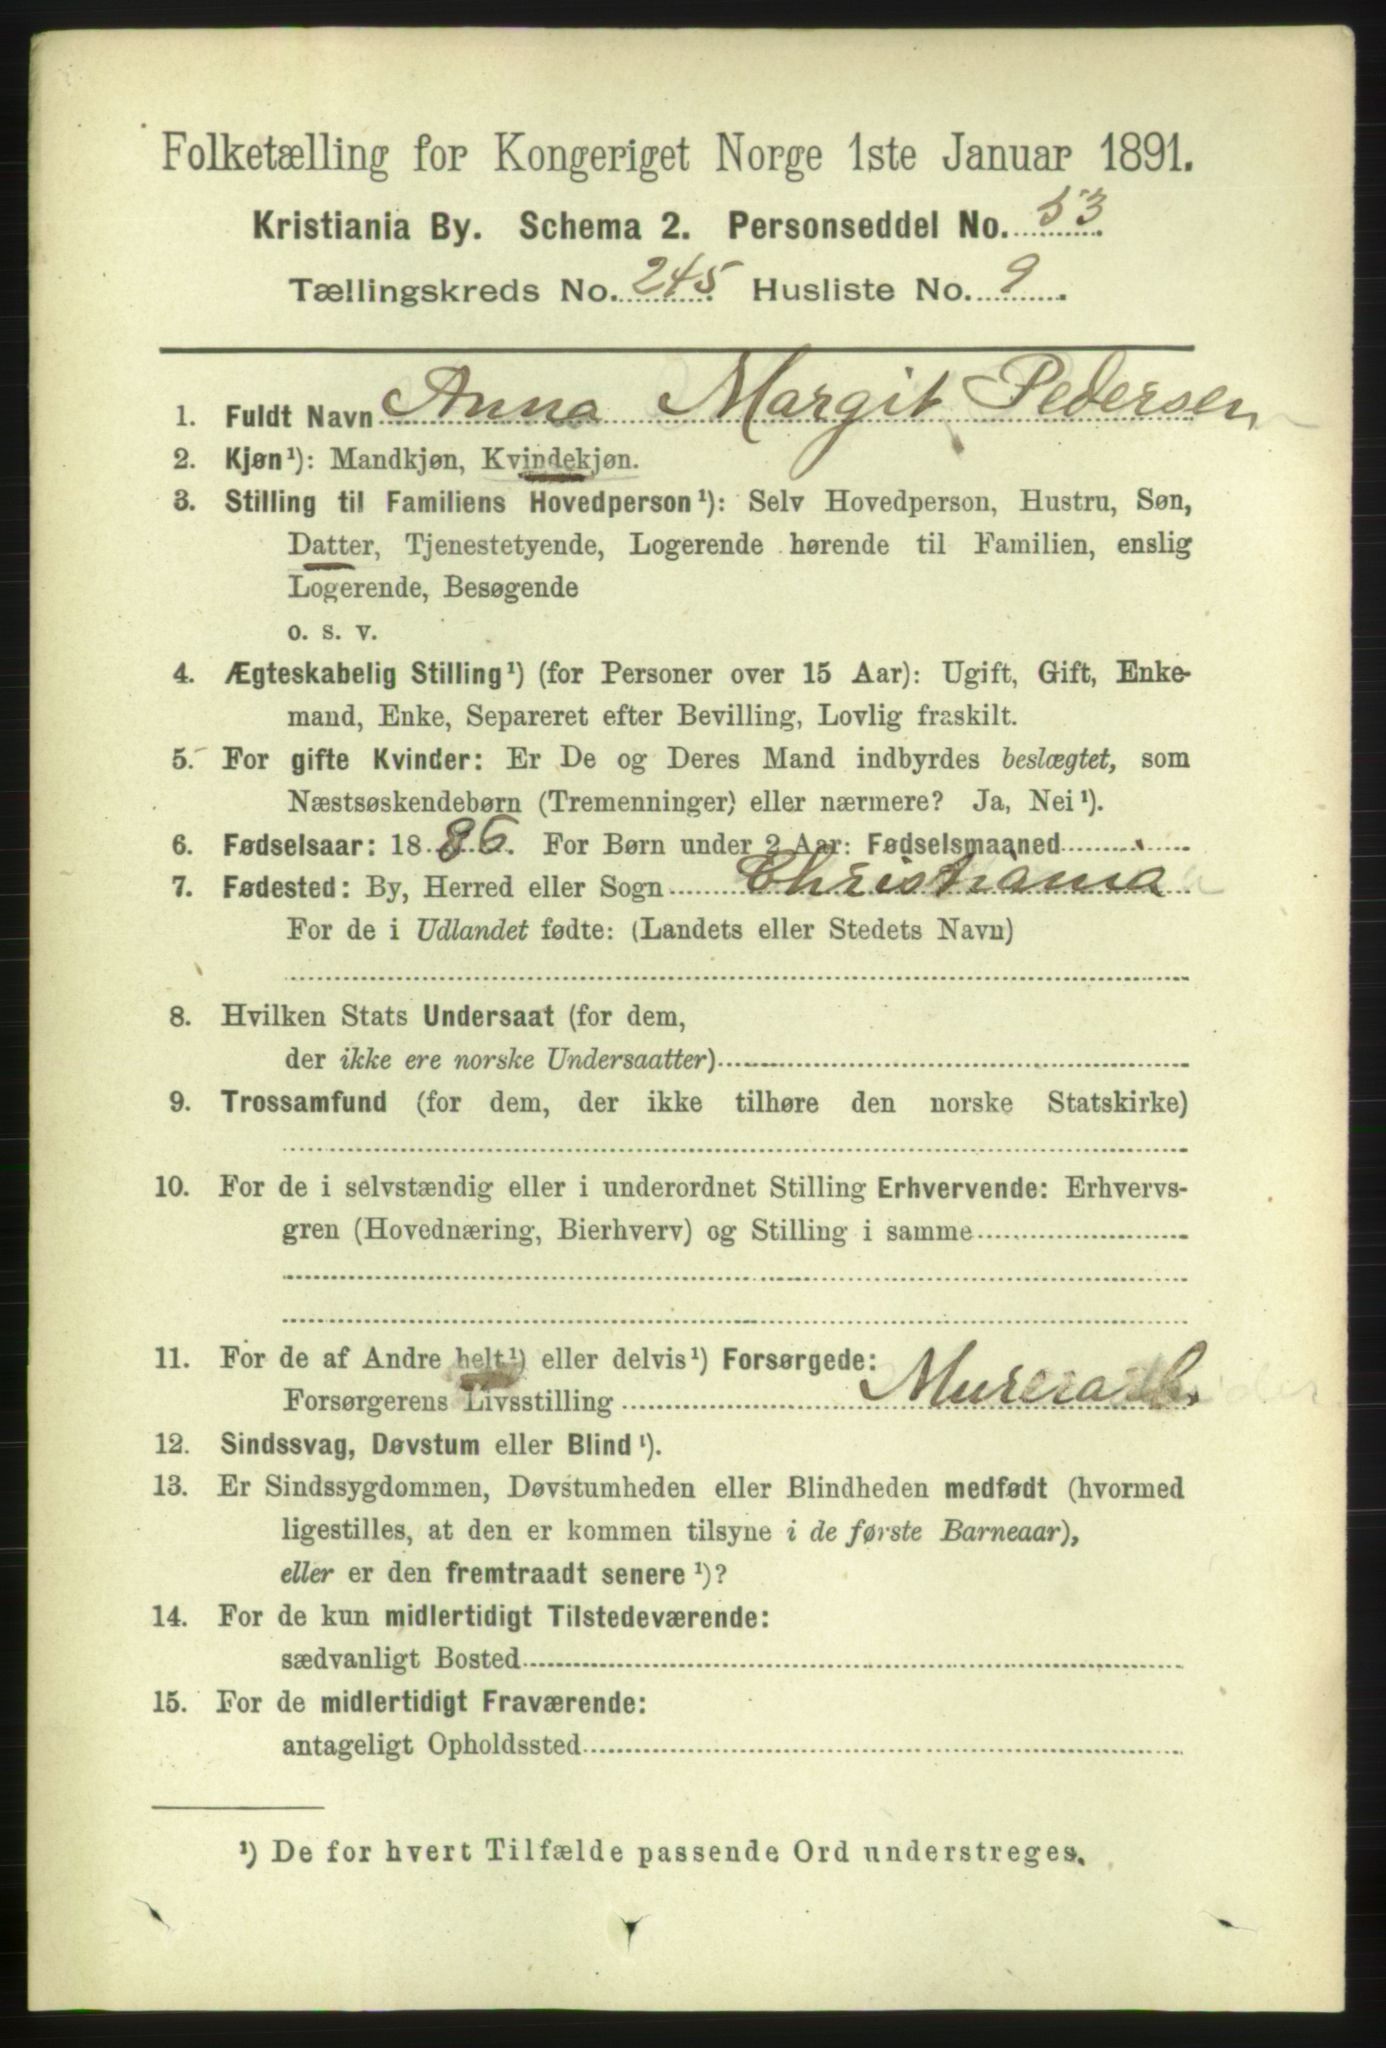 Folketælling for Kongeriget Norge 1ste Januar 1891.
Kristiania By. Schema 2. Personseddel No. 53
Tællingskreds No. 245 Husliste No. 9
1. Fuldt Navn Anna Margit Pedersen
2. Kjøn¹): Mandkjøn, Kvindekjøn.
3. Stilling til Familiens Hovedperson¹): Selv Hovedperson, Hustru, Søn,
Datter, Tjenestetyende, Logerende hørende til Familien, enslig
Logerende, Besøgende
o. s. v.
4. Ægteskabelig Stilling¹) (for Personer over 15 Aar): Ugift, Gift, Enke-
mand, Enke, Separeret efter Bevilling, Lovlig fraskilt.
5. For gifte Kvinder: Er De og Deres Mand indbyrdes beslægtet, som
Næstsøskendebørn (Tremenninger) eller nærmere? Ja, Nei¹).
6. Fødselsaar: 1886. For Børn under 2 Aar: Fødselsmaaned
7. Fødested: By, Herred eller Sogn Christiania
For de i Udlandet fødte: (Landets eller Stedets Navn)
8. Hvilken Stats Undersaat (for dem,
der ikke ere norske Undersaatter)
9. Trossamfund (for dem, der ikke tilhøre den norske Statskirke)
10. For de i selvstændig eller i underordnet Stilling Erhvervende: Erhvervs-
gren (Hovednæring, Bierhverv) og Stilling i samme
11. For de af Andre helt¹) eller delvis¹) Forsørgede:
Forsørgerens Livsstilling Murerarb.
12. Sindssvag, Døvstum eller Blind¹).
13. Er Sindssygdommen, Døvstumheden eller Blindheden medfødt (hvormed
ligestilles, at den er kommen tilsyne i de første Barneaar),
eller er den fremtraadt senere¹)?
14. For de kun midlertidigt Tilstedeværende:
sædvanligt Bosted
15. For de midlertidigt Fraværende:
antageligt Opholdssted
¹) De for hvert Tilfælde passende Ord understreges.